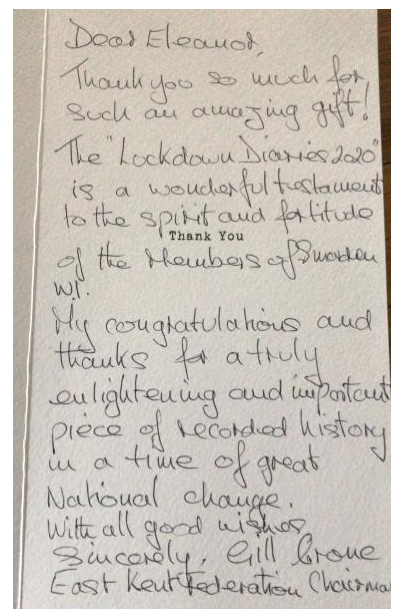 Dear Eleanor,
Thank you so much for
such an amazing gift!
The "Lockdown Diaries 2020"
is a wonderful testament
to the spirit and fortitude
Thank You
of the Members of Smarden
W.I.
My congratulations and
thanks for a truly
enlightening and important
piece of recorded history
in a time of great
National change.
With all good wishes
Sincerely, Gill
East Kent Federation Chairma